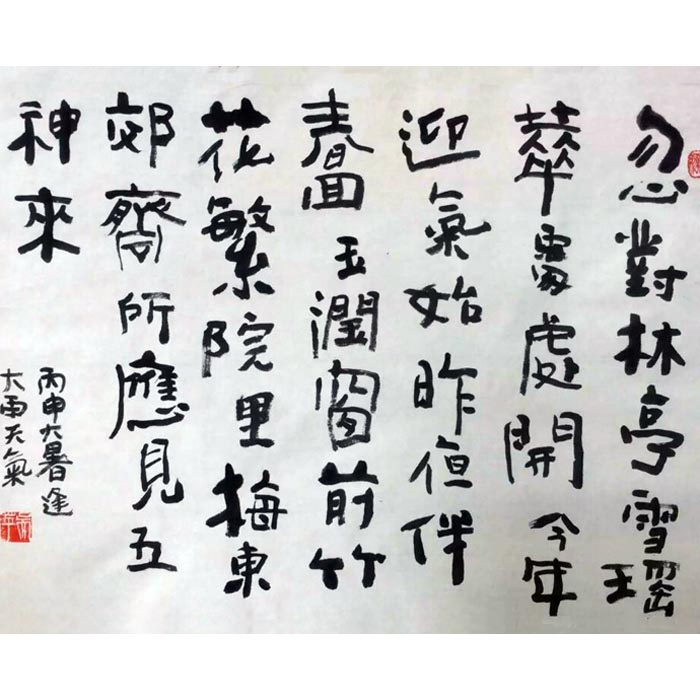 忽對林亭雪瑤
華處處開今年
迎氣始昨夜伴
春回玉潤窗前竹
花繁院里梅東
郊齋所應見五
神來
丙申大暑逢
大雨天氣